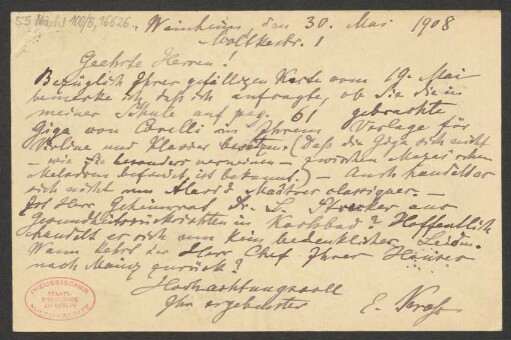 55 Nachl 100/B, 16626
Weinheim, den 30. Mai 1908
Moltkestr. 1
Geehrte Herren!
Bezüglich Ihrer gefälligen Karte vom 19. Mai
bemerke ich, daß ich anfragte, ob Sie die in
meiner Schule auf pag. 61 gebrachte
Giga von Corelli in Ihrem Verlage für
Violine und Klavier besitzen. (Daß die Giga sich nicht
– wie Sie besonders – zwischen
befindet, ist bekannt.) – Auch handelt es
sich nicht um Alard's Maîtres classiques. –
Ist Herr Geheimrat Dr. L. Strecker aus
Gesundheitsrücksichten in Karlsbad? Hoffentlich
handelt es sich um kein bedenkliches Leiden.
Wann kehrt der Herr Chef Ihres Hauses
nach Mainz zurück?
Hochachtungsvoll
Ihr ergebenster
E. Kross
PREUSSISCHER
STAATS-
BIBLIOTHEK
ZU BERLIN
KULTURBESITZ